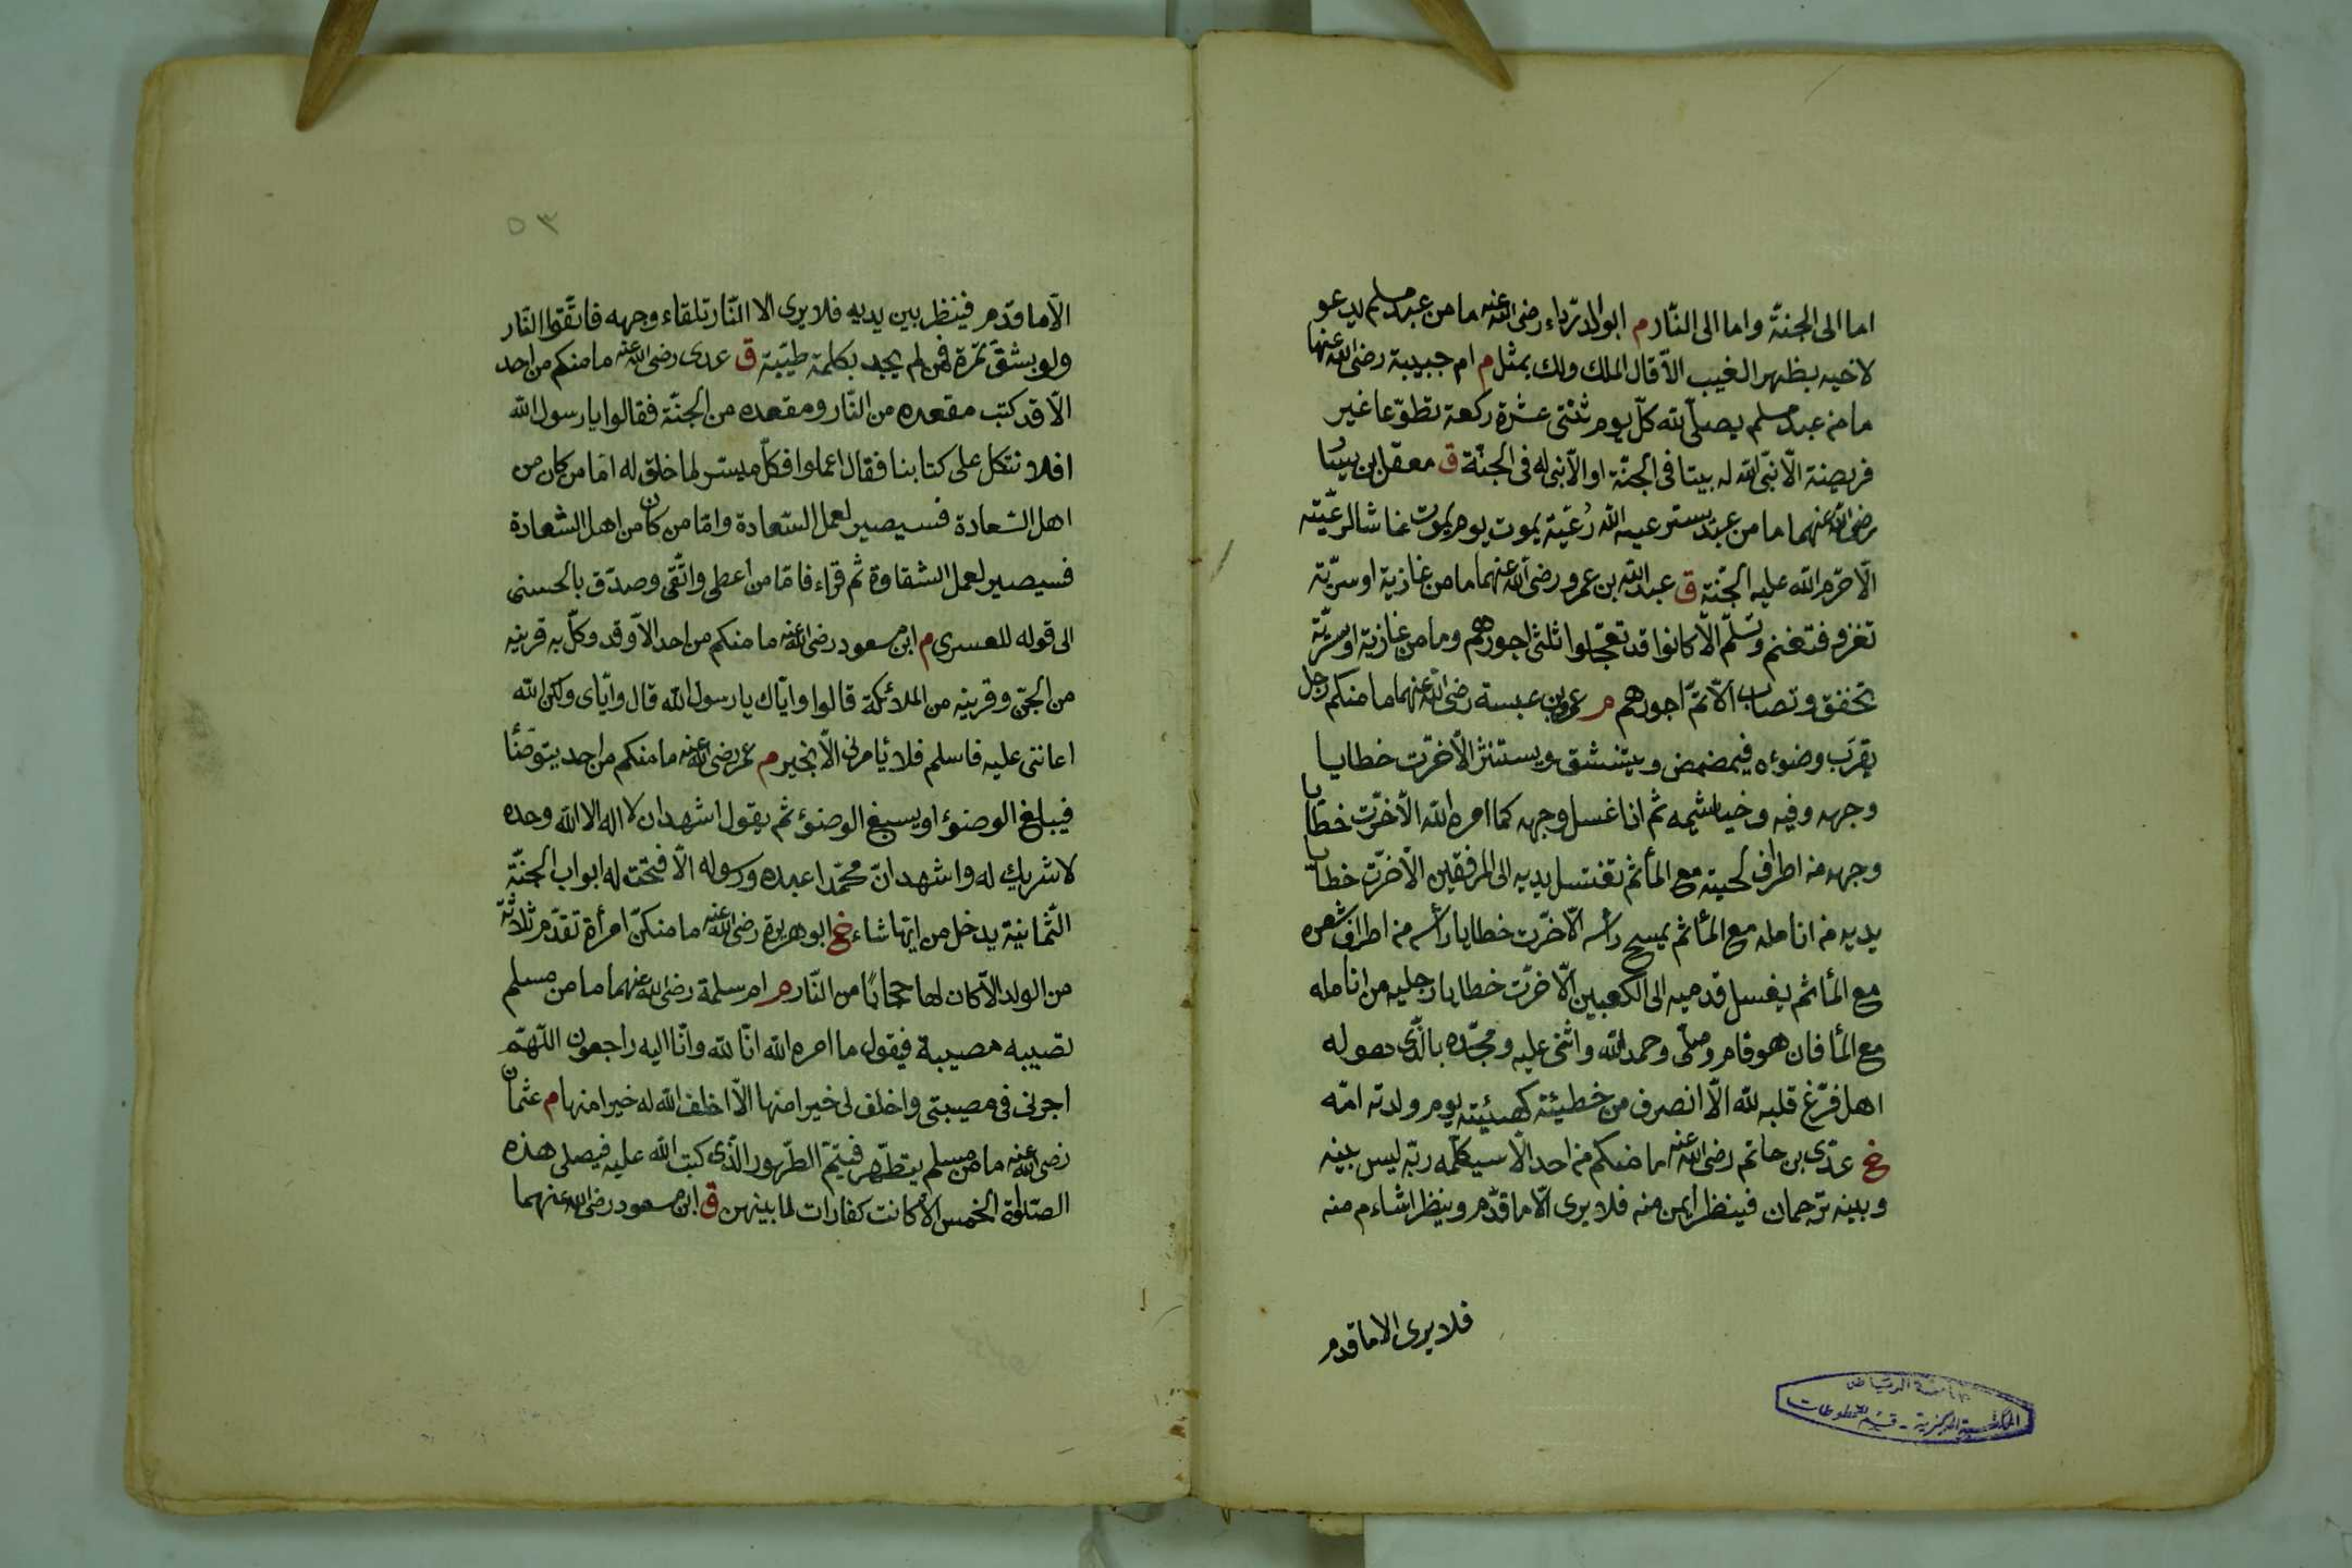 اما الى الجنة واما الى النار م ابو الدرداء رضى الله عنه ما من عبد مسلم يدعو
لاخيه بظهر الغيب الا قال الملك ولك بمثل م ام حبيبة رضى الله عنها
ما من عبد مسلم يصلى لله كل يوم ثنتى عشرة ركعة تطوعا غير
فريضة الا بنى الله له بيتا فى الجنة او الا بنى له فى الجنة ق معقل بن يسار
رضى الله عنهما ما من عبد يسترعيه الله رعية يموت يوم يموت غاشا لرعيته
الا حرم الله عليه الجنة ق عبد الله بن عمرو رضى الله عنهما ما من غازية او سرية
تغزو فتغنم وتسلم الا كانوا قد تعجلوا ثلثى اجورهم وما من غازية او سرية
تخفق وتصاب الا تم اجورهم م عمرو بن عبسة رضى الله عنهما ما منكم رجل
يقرب وضوءه فيمضمض ويتنشق ويستنثر الا خرت خطايا
وجهه وفيه وخياشيمه ثم اذا غسل وجهه كما امره الله الا خرت خطايا
وجهه من اطراف لحيته مع المأ ثم تغتسل يديه الى المرفقين الا خرت خطايا
يديه من انامله مع المأ ثم يمسح رأسه الا خرت خطايا رأسه من اطراف شعره
مع المأ ثم يغسل قدميه الى الكعبين الا خرت خطايا رجليه من انامله
مع المأ فان هو قام وصلى وحمد الله واثنى عليه ومجده بالذى هو له
اهل فرغ قلبه لله الا انصرف من خطيئته كهيئته يوم ولدته امه
خ عدى بن حاتم رضى الله عنه ما منكم من احد الا سيكلمه ربه ليس بينه
وبينه ترجمان فينظر ايمن منه فلا يرى الا ما قدم وينظر اشاءم منه
فلا يرى الا ما قدم
المكتبة المركزية - قسم المخطوطات
٥٣
الا ما قدم فينظر بين يديه فلا يرى الا النار تلقاء وجهه فاتقوا النار
ولو بشق تمرة فمن لم يجد بكلمة طيبة ق عدى رضى الله عنه ما منكم من احد
الا قد كتب مقعده من النار ومقعده من الجنة فقالوا يا رسول الله
افلا نتكل على كتابنا فقال اعملوا فكل ميسر لما خلق له اما من كان من
اهل السعادة فسيصير لعمل السعادة واما من كان من اهل الشعادة
فسيصير لعمل الشقاوة ثم قراء فاما من اعطى واتقى وصدق بالحسنى
الى قوله للعسرى م ابن مسعود رضى الله عنه ما منكم من احد الا وقد وكل به قرينه
من الجن وقرينه من الملائكة قالوا واياك يا رسول الله قال واياى ولكن الله
اعانتى عليه فاسلم فلا يأمرنى الا بخير م عمر رضى الله عنه ما منكم من احد يتوضئأ
فيبلغ الوضوء او يسبغ الوضوء ثم يقول اشهد ان لا اله الا الله وحده
لا شريك له واشهد ان محمدا عبده ورسوله الا فتحت له ابواب الجنة
الثمانية يدخل من ايها شاء خ ابو هريرة رضى الله عنه ما منكن امرأة تقدم ثلاثة
من الولد الا كان لها حجابا من النار م ام سلمة رضى الله عنهما ما من مسلم
تصيبه مصيبة فيقول ما امره الله انا لله وانا اليه راجعون اللهم
اجرنى فى مصيبتى واخلف لى خيرا منها الا اخلف الله له خيرا منها م عثمان
رضى الله عنه ما من مسلم يتطهر فيتم الطهور الذى كتب الله عليه فيصلى هذه
الصلوة الخمس الا كانت كفارات لما بينهن ق ابن مسعود رضى الله عنهما